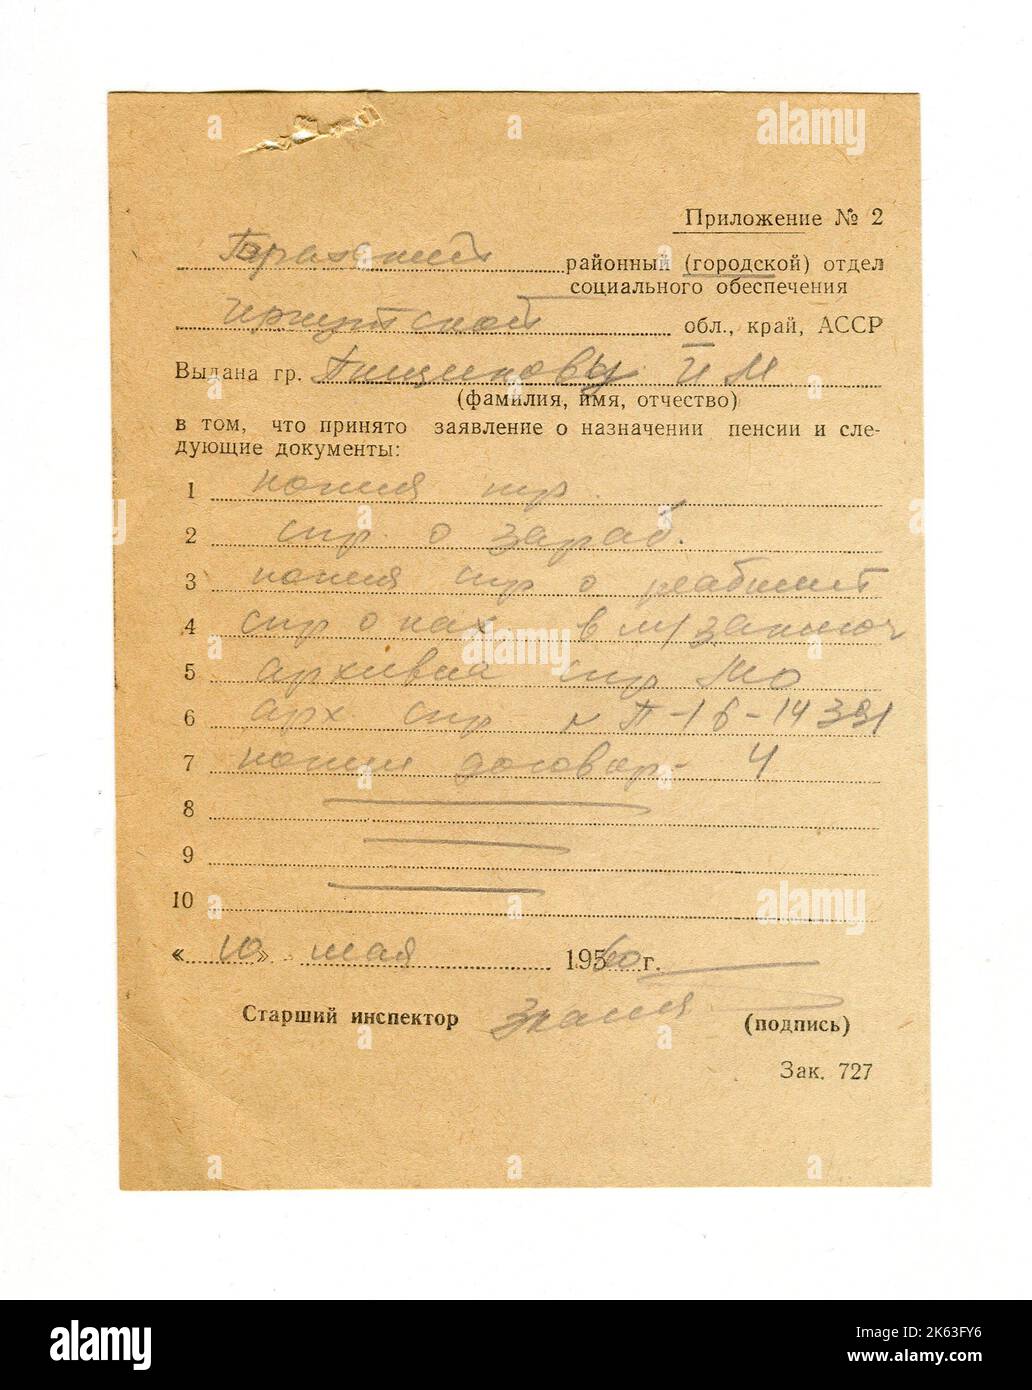 Приложение № 2
районный (городской) отдел
социального обеспечения
Иркутской обл., край, АССР
Выдана гр. И М
(фамилия, имя, отчество)
в том, что принято заявление о назначении пенсии и сле-
дующие документы:
1 копия тр.
2 спр. о зараб.
3 копия спр о реабилит
4 спр о нах в м/заключ
5 архивная спр
6 арх. спр П-16-14391
7 копии договор- 4
8
9
10
« 10 » мая 1960 г.
Старший инспектор (подпись)
Зак. 727
alamy
a
a
alamy
a
a
alamy
a
alamy
a
a
a
alamy
Image ID: 2K63FY6
www.alamy.com